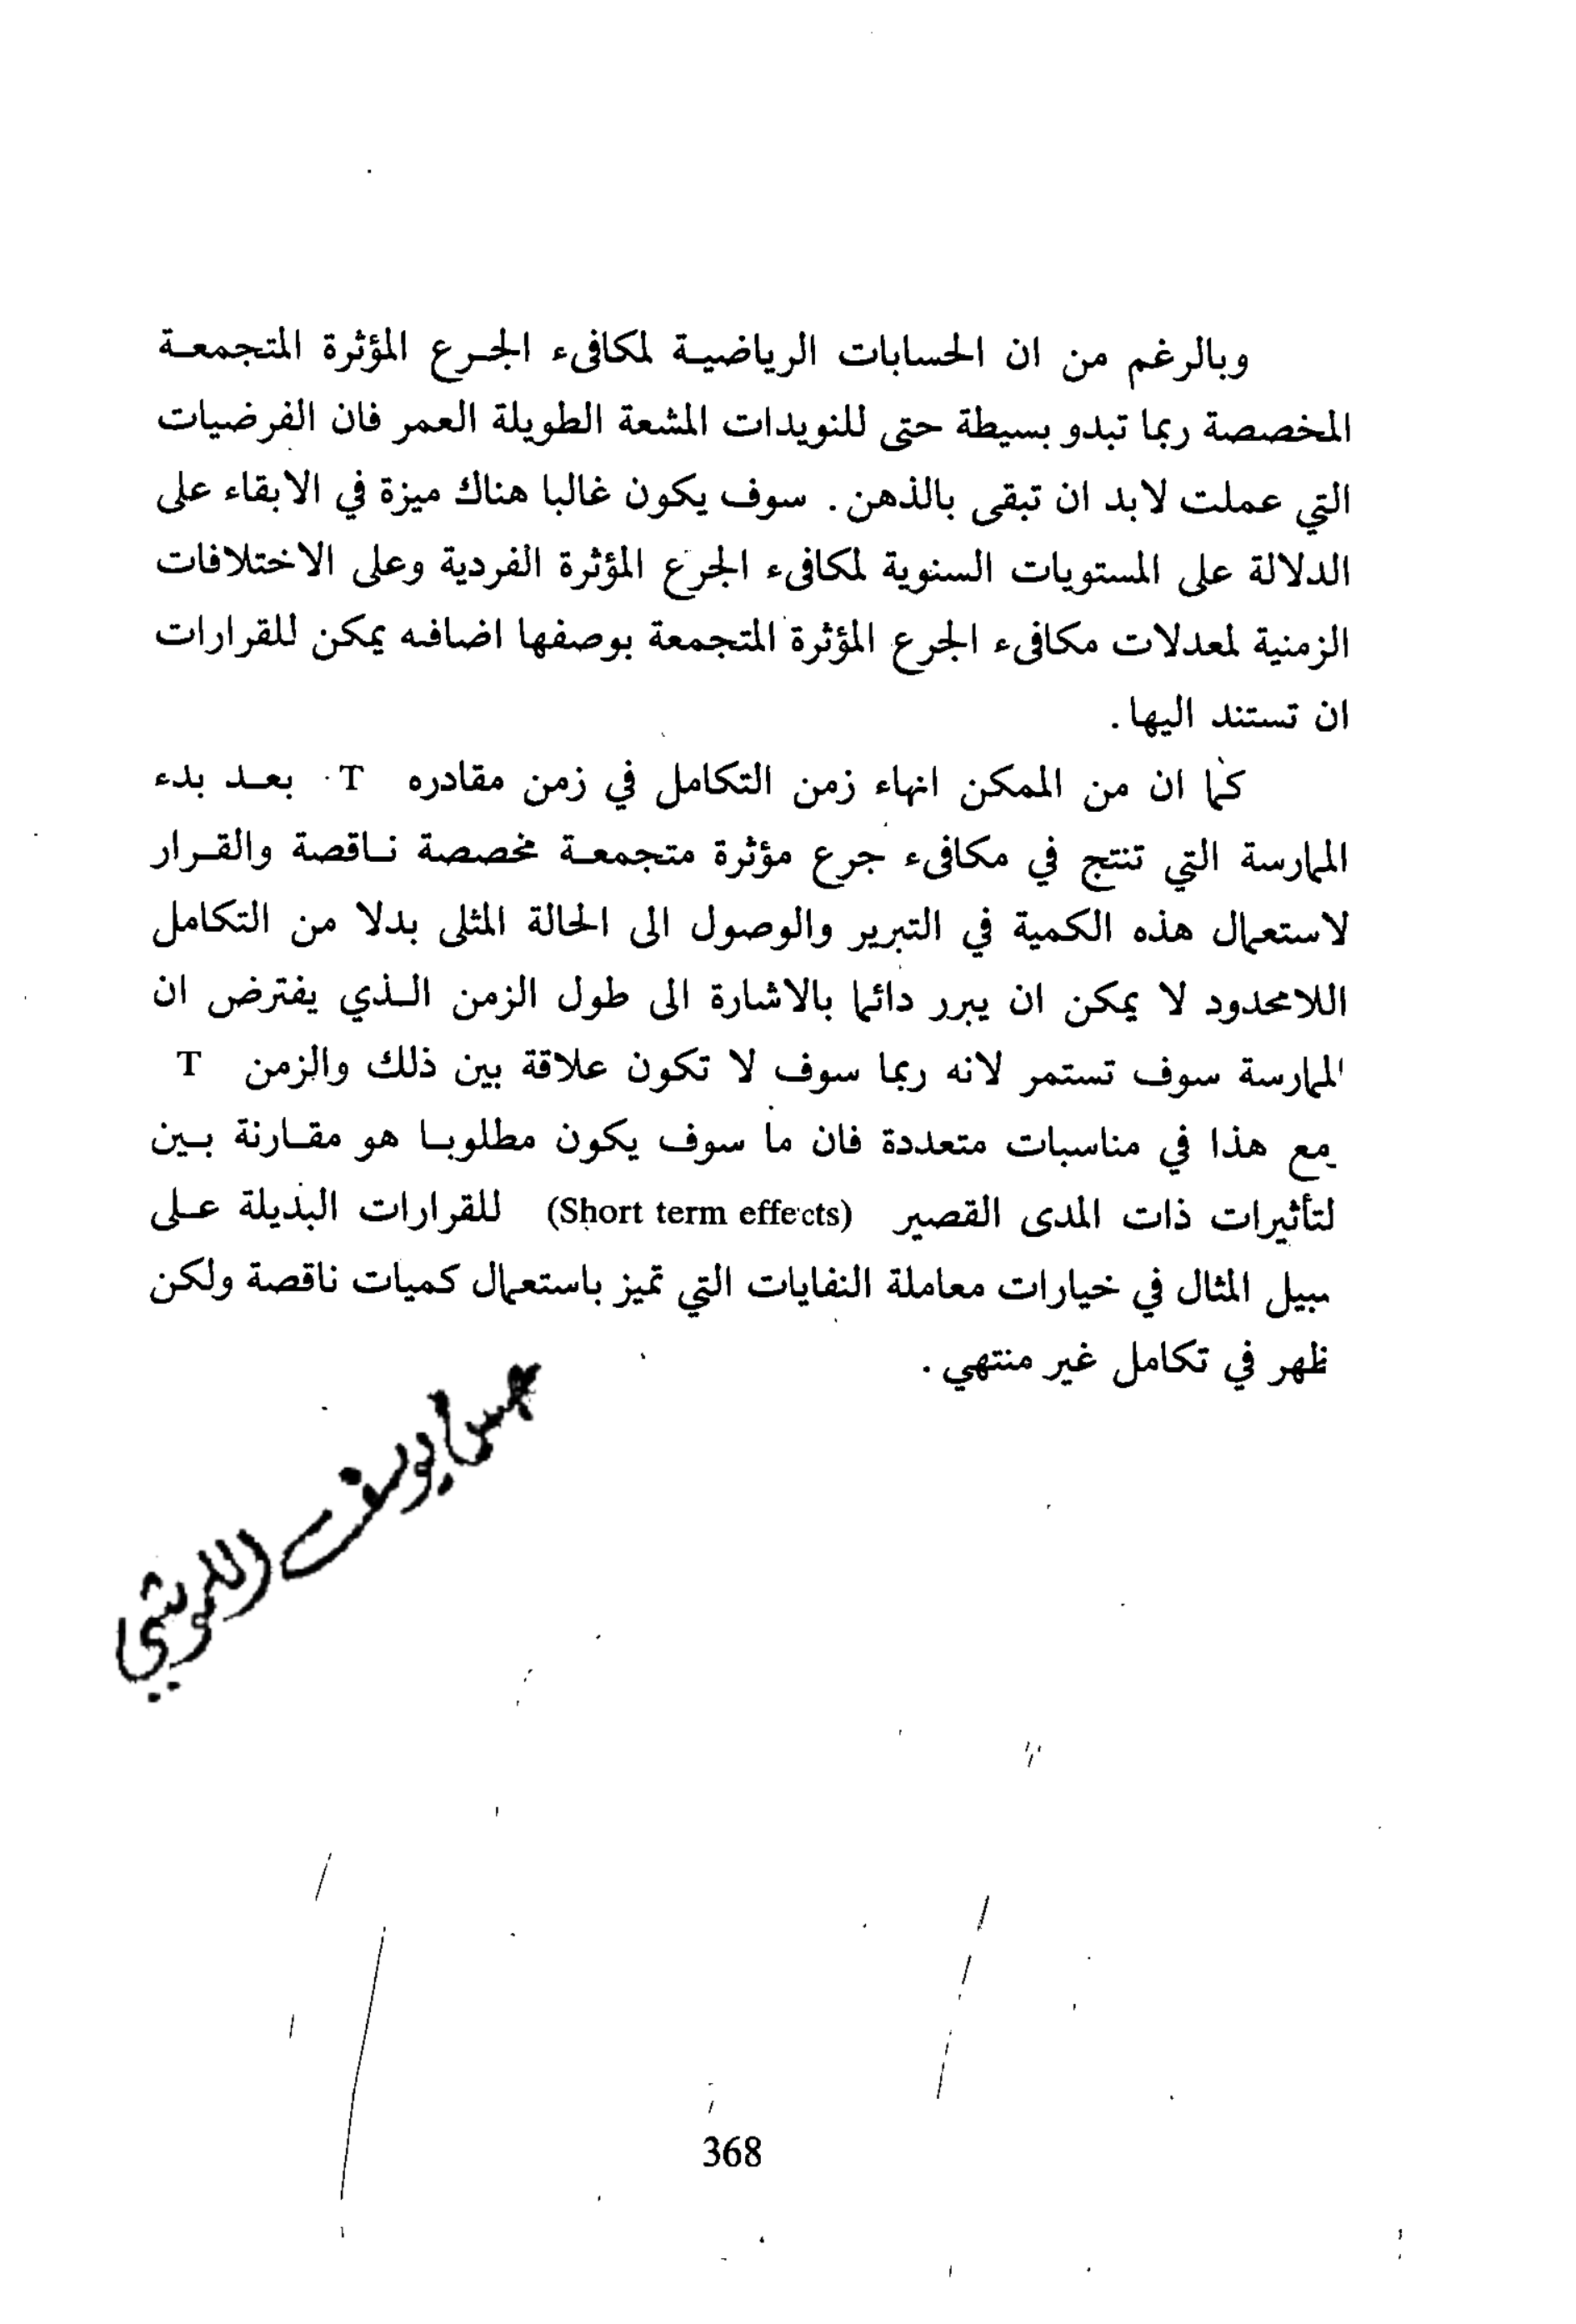 وبالرغم من ان الحسابات الرياضية لمكافىء الجرع المؤثرة المتجمعة
المخصصة ربما تبدو بسيطة حتى للنويدات المشعة الطويلة العمر فان الفرضيات
التي عملت لابد ان تبقى بالذهن. سوف يكون غالبا هناك ميزة في الابقاء على
الدلالة على المستويات السنوية لمكافىء الجرع المؤثرة الفردية وعلى الاختلافات
الزمنية لمعدلات مكافىء الجرع المؤثرة المتجمعة بوصفها اضافه يمكن للقرارات
ان تستند اليها.
كما ان من الممكن انهاء زمن التكامل في زمن مقادره T بعد بدء
الممارسة التي تنتج في مكافىء جرع مؤثرة متجمعة مخصصة ناقصة والقرار
لاستعمال هذه الكمية في التبرير والوصول الى الحالة المثلى بدلا من التكامل
اللامحدود لا يمكن ان يبرر دائما بالاشارة الى طول الزمن الذي يفترض ان
الممارسة سوف تستمر لانه ربما سوف لا تكون علاقة بين ذلك والزمن T
مع هذا في مناسبات متعددة فان ما سوف يكون مطلوبا هو مقارنة بين
لتأثيرات ذات المدى القصير (Short term effects) للقرارات البديلة على
سبيل المثال في خيارات معاملة النفايات التي تميز باستعمال كميات ناقصة ولكن
ظهر في تكامل غير منتهي.
يوسف
368